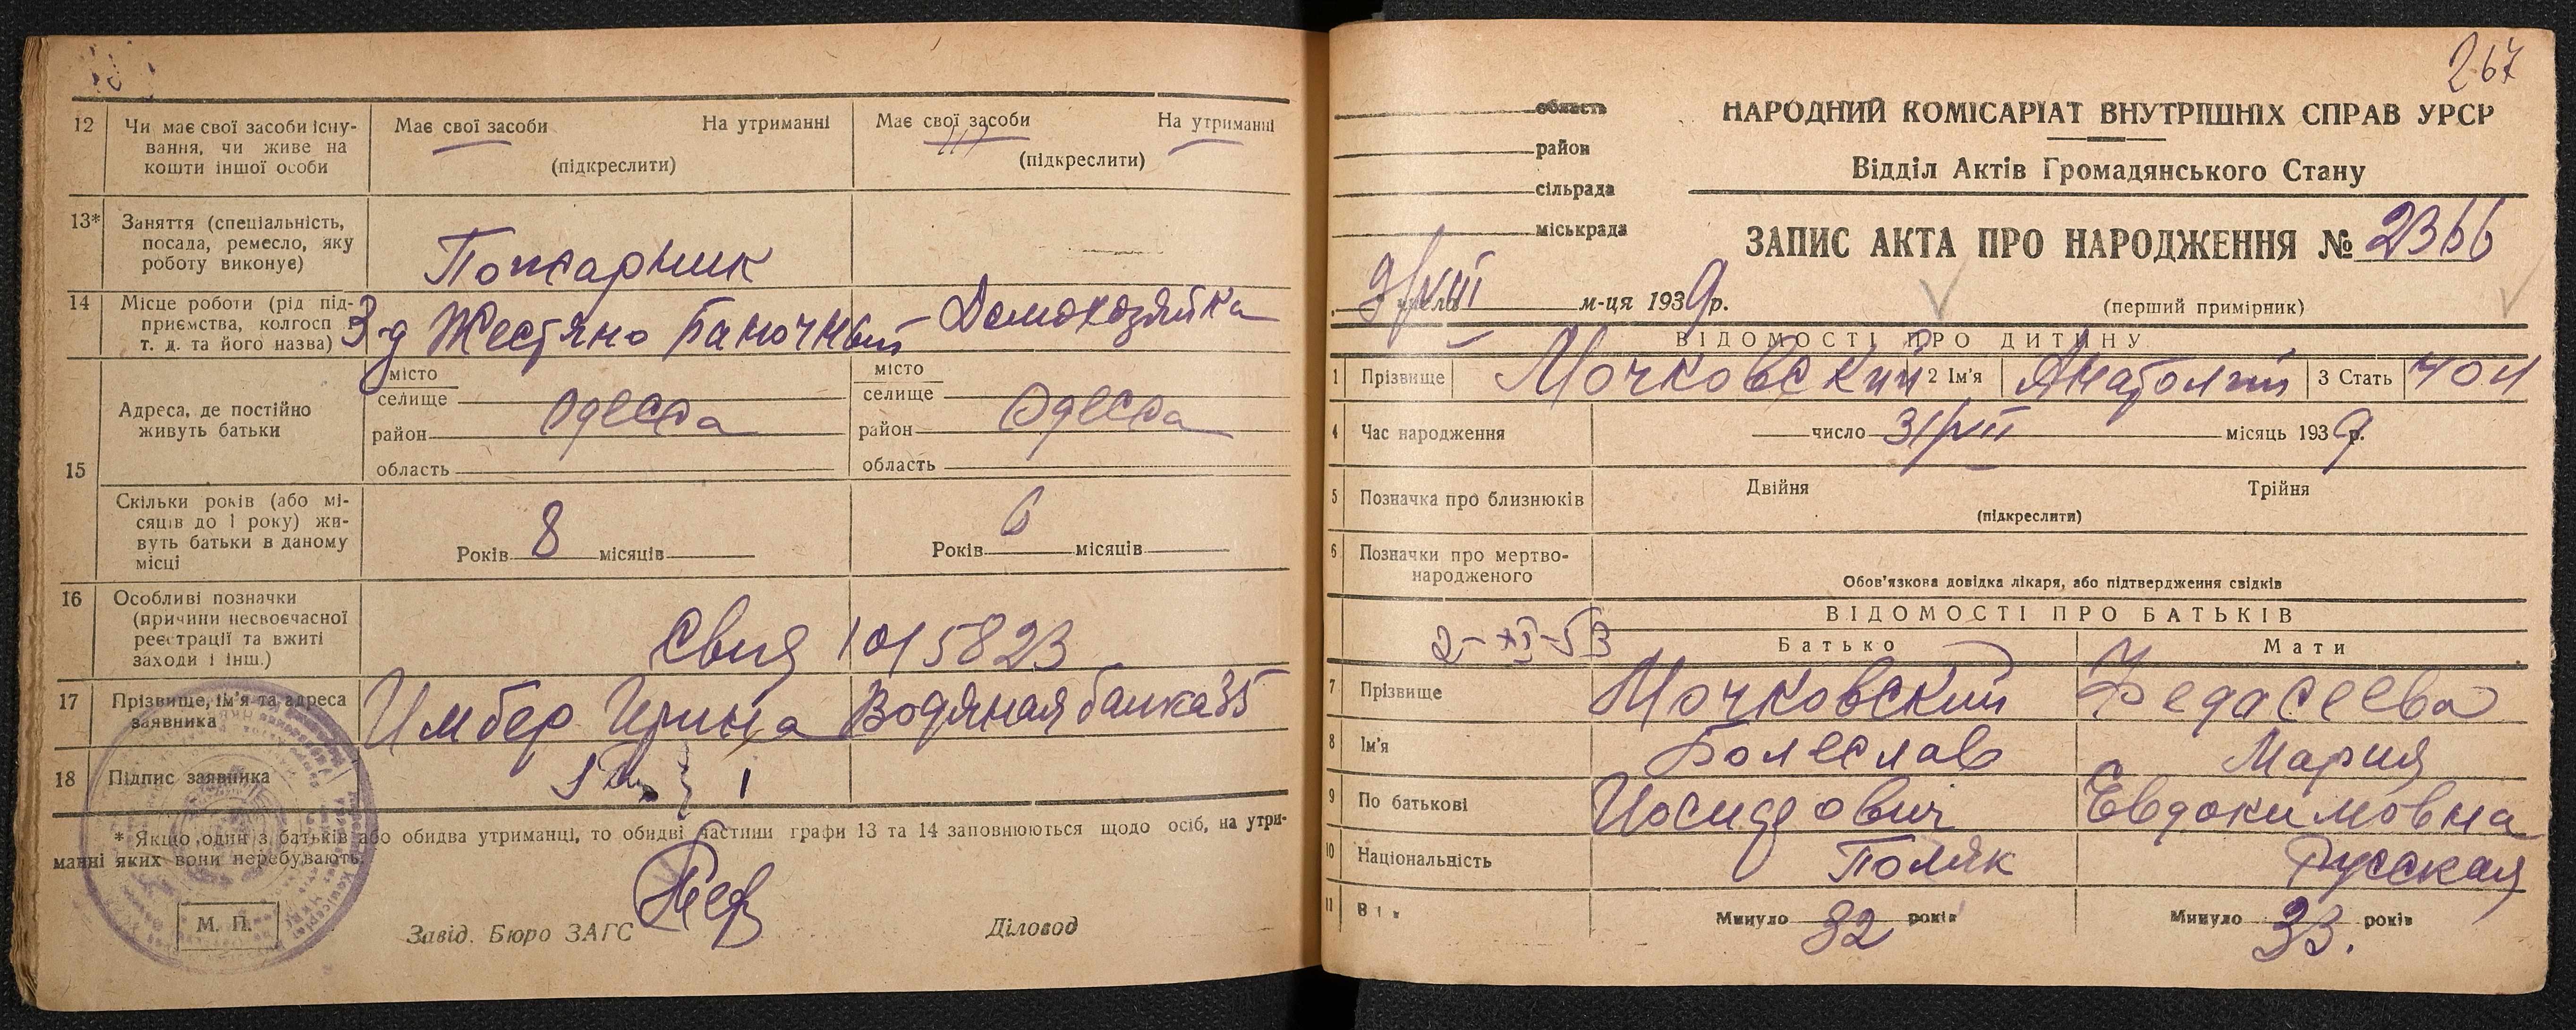 12 Чи має свої засоби існування, чи живе на кошти іншої особи
Має свої засоби На утриманні
(підкреслити)
Має свої засоби На утриманні
(підкреслити)
13* Заняття (спеціальність, посада, ремесло, яку роботу виконує)
Пожарник
14 Місце роботи (рід підприємства, колгосп і т. д. та його назва)
З-д Жестяно Баночный
Домохозяйка
15 Адреса, де постійно живуть батьки
місто
селище
район
область
Одесса
місто
селище
район
область
Одесса
Скільки років (або місяців до 1 року) живуть батьки в даному місці
Років 8 місяців
Років 6 місяців
16 Особливі позначки (причини несвоєчасної реєстрації та вжиті заходи і інш.)
17 Прізвище, ім'я та адреса заявника
Имбер Ирина Водяная балка 35
18 Підпис заявника
* Якщо один з батьків або обидва утриманці, то обидві частини графи 13 та 14 заповнюються щодо осіб, на утри-
манні яких вони перебувають.
М. П.
Завід. Бюро ЗАГС
Діловод
267
область
район
сільрада
міськрада
НАРОДНИЙ КОМІСАРІАТ ВНУТРІШНІХ СПРАВ УРСР
Відділ Актів Громадянського Стану
ЗАПИС АКТА ПРО НАРОДЖЕННЯ № 2366
9/VIII м-ця 1939 р.
(перший примірник)
ВІДОМОСТІ ПРО ДИТИНУ
1 Прізвище Мочковский 2 Ім'я Анатолий 3 Стать чол
4 Час народження число 31/VII місяць 1939 р.
5 Позначка про близнюків Двійня Трійня
(підкреслити)
6 Позначки про мертвонародженого
Обов'язкова довідка лікаря, або підтвердження свідків
ВІДОМОСТІ ПРО БАТЬКІВ
2-XI-53
Батько Мати
7 Прізвище Мочковский Федасеева
8 Ім'я Болеслав Мария
9 По батькові Иосифович Евдокимовна
10 Національність Поляк Русская
11 Вік Минуло 32 років Минуло 33. років